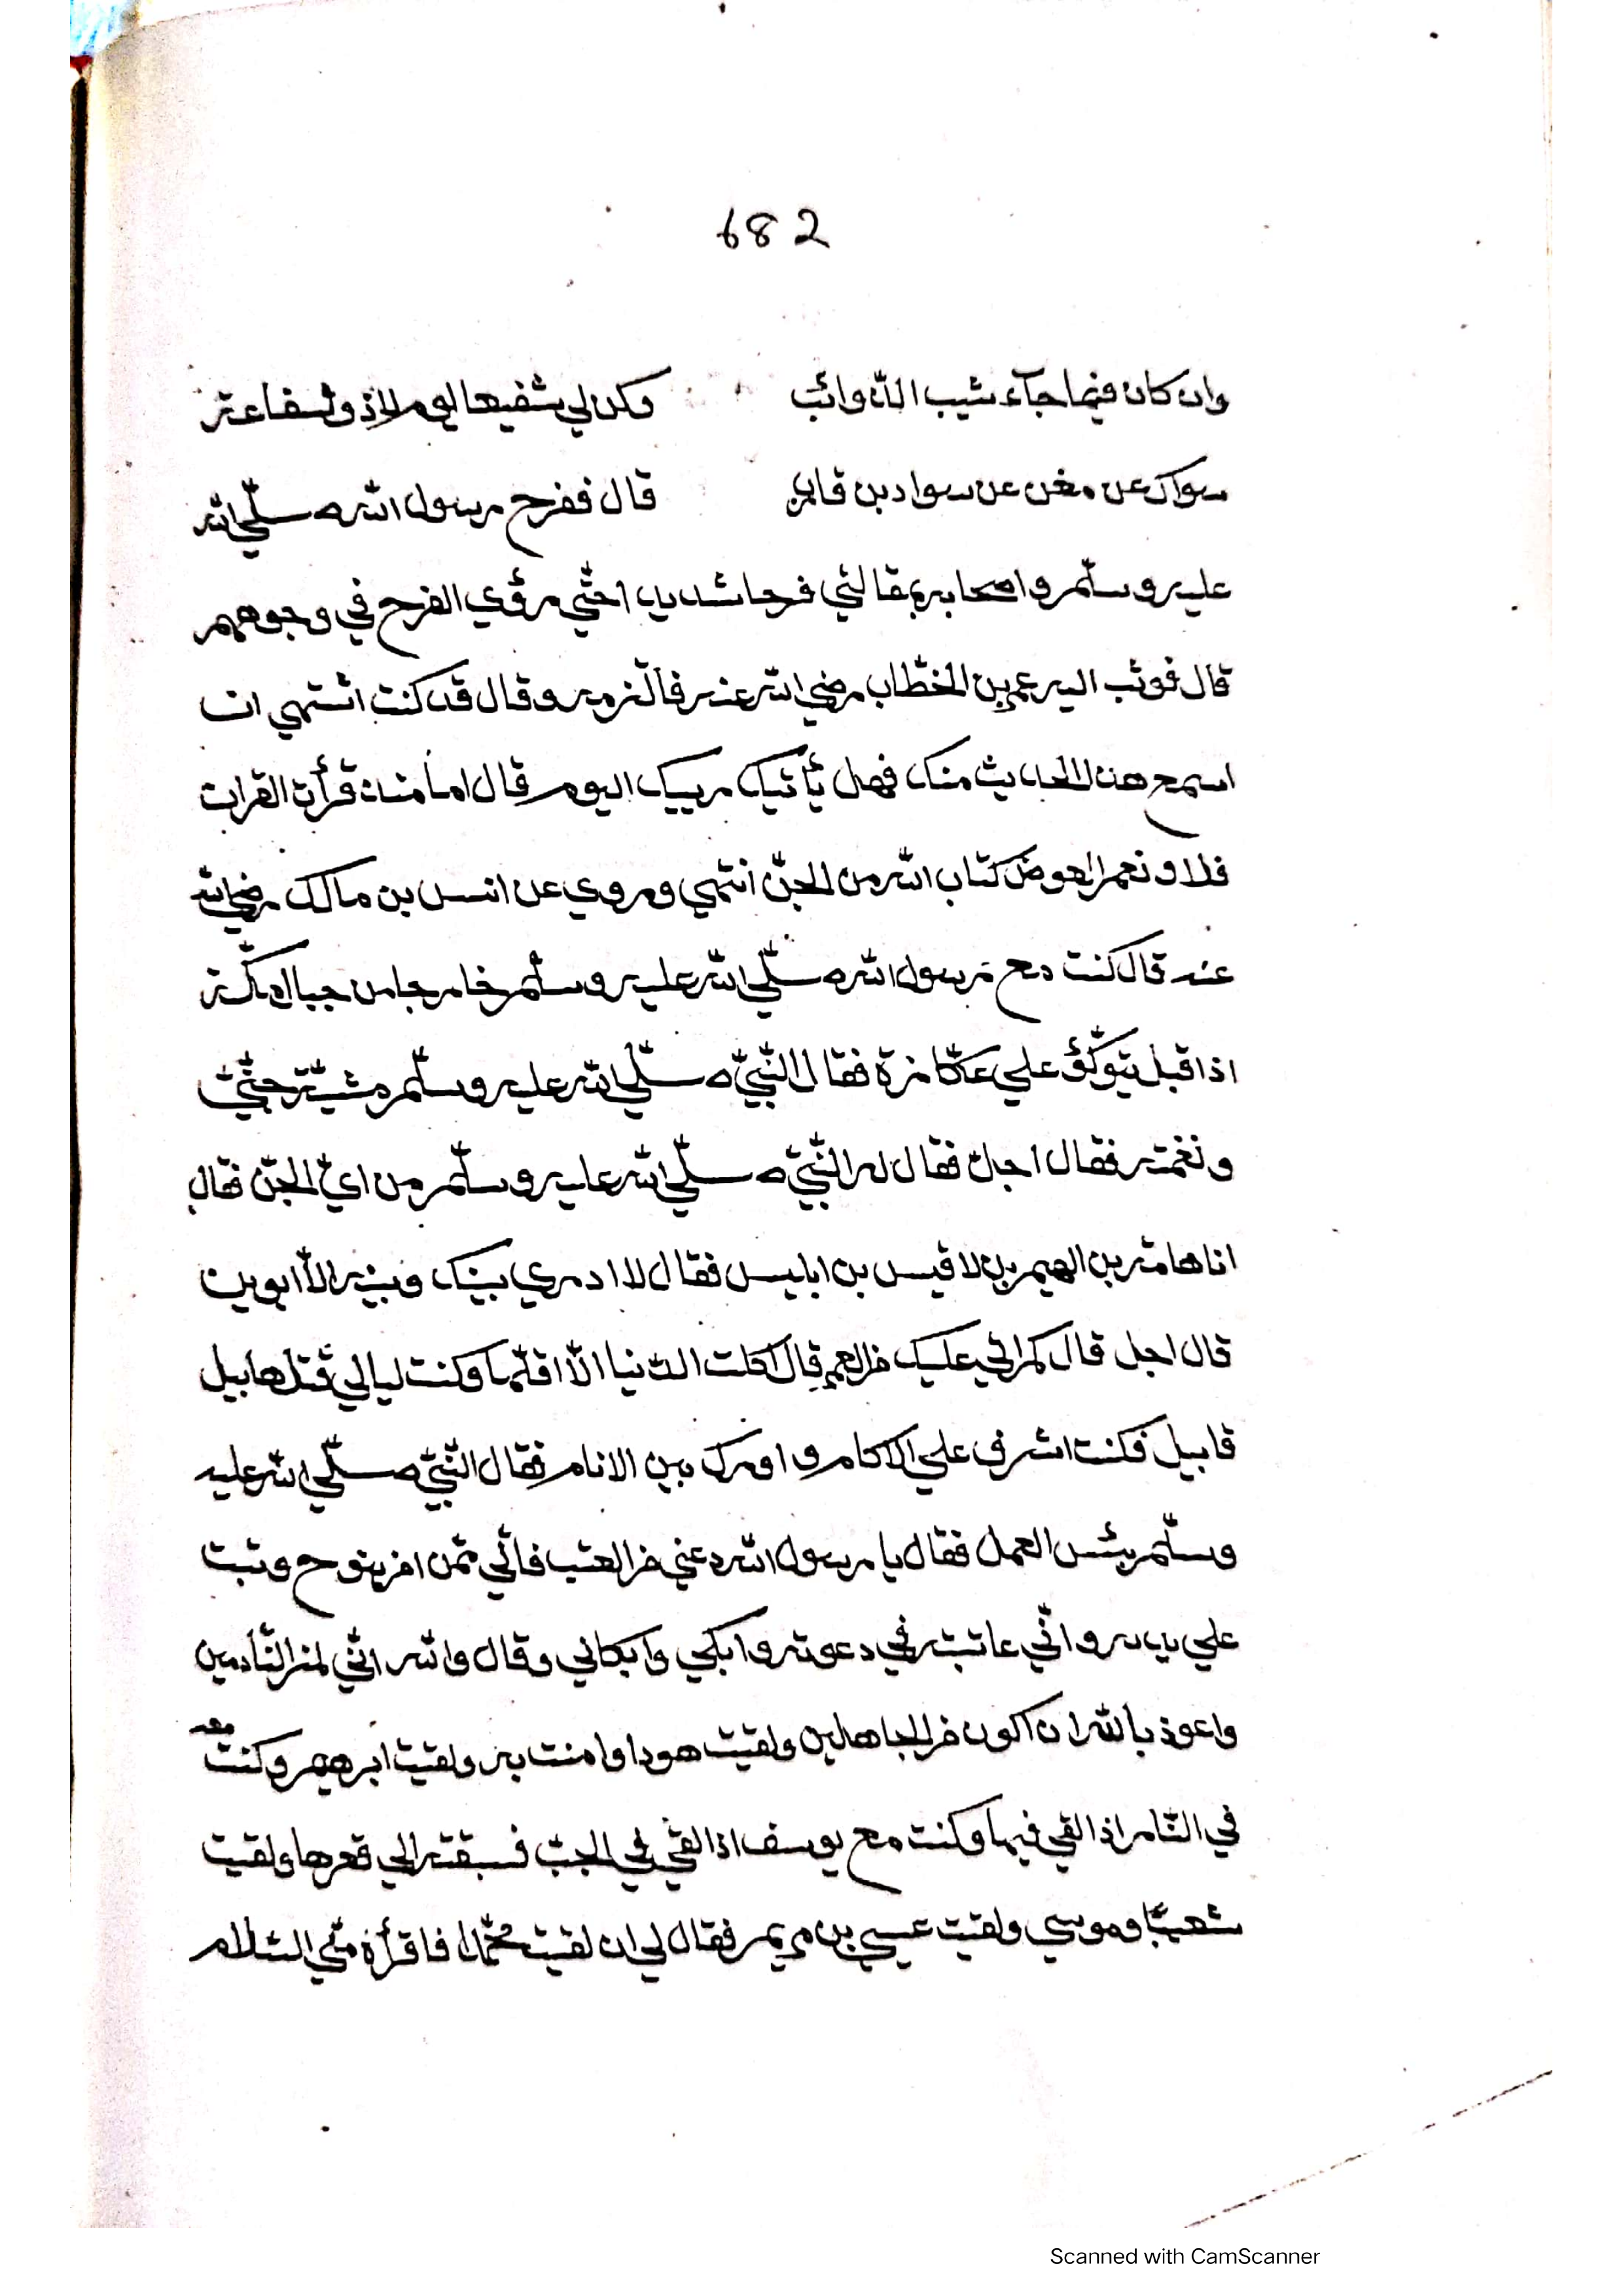 682
وان كان فيما جآء شيب الذّوائب وكن لي شفيعا يوم لاذو شفاعة
سواك عن مغن عن سواد بن قارب قال ففرح رسول الله صلّي الله
عليه وسلّم واصحابه بمقالتي فرحا شديدا حتّي رؤي الفرح في وجوههم
قال فوثب اليه عمر بن الخطّاب رضي الله عنه فالتزمه وقال قد كنت اشتهي ان
اسمع هذا الحديث منك فهل يأتيك رييك اليوم قال اما منذ قرأت القران
فلا ونعم العوض كتاب الله من الجنّ انتهي وروي عن انس بن مالك رضي الله
عنه قال كنت مع رسول الله صلّي الله عليه وسلّم خارجا من جبال مكّة
اذ اقبل يتوكّؤ علي عكّازة فقال النّبيّ صلّي الله عليه وسلّم مشية جنّيّ
ونغمته فقال اجل فقال له النّبيّ صلّي الله عليه وسلّم من ايّ الجنّ فقال
انا هامة بن الهيم بن لاقيس بن ابليس فقال لا ادري بينك وبينه الّا ابوين
قال اجل قال كم اتي عليك من العمر قال اكلت الدّنيا الّا اقلّها وكنت ليالي قتل هابيل
قابيل فكنت اشرف علي الاكام واورك بين الانام فقال النّبيّ صلّي الله عليه
وسلّم بئس العمل فقال يا رسول الله دعني من العتب فانّي ممّن امن بنوح وتبت
علي يديه وانّي عاتبته في دعوته وابكي وابكاني وقال والله انّي لمن النّادمين
واعوذ بالله ان اكون من الجاهلين ولقيت هودا وامنت به ولقيت ابرهيم وكنت معه
في النّار اذ القي فيها وكنت مع يوسف اذ القي في الجبّ فسبقته الي قعرها ولقيت
شعيبًا وموسي ولقيت عيسي بن مريم فقال لي ان لقيت محمّدا فاقرأه منّي السّلام
Scanned with CamScanner